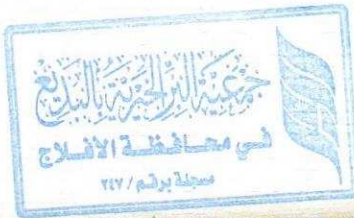 جمعية البر الخيرية بالبديع
في محافظة الأفلاج
مسجلة برقم / ٢٤٧